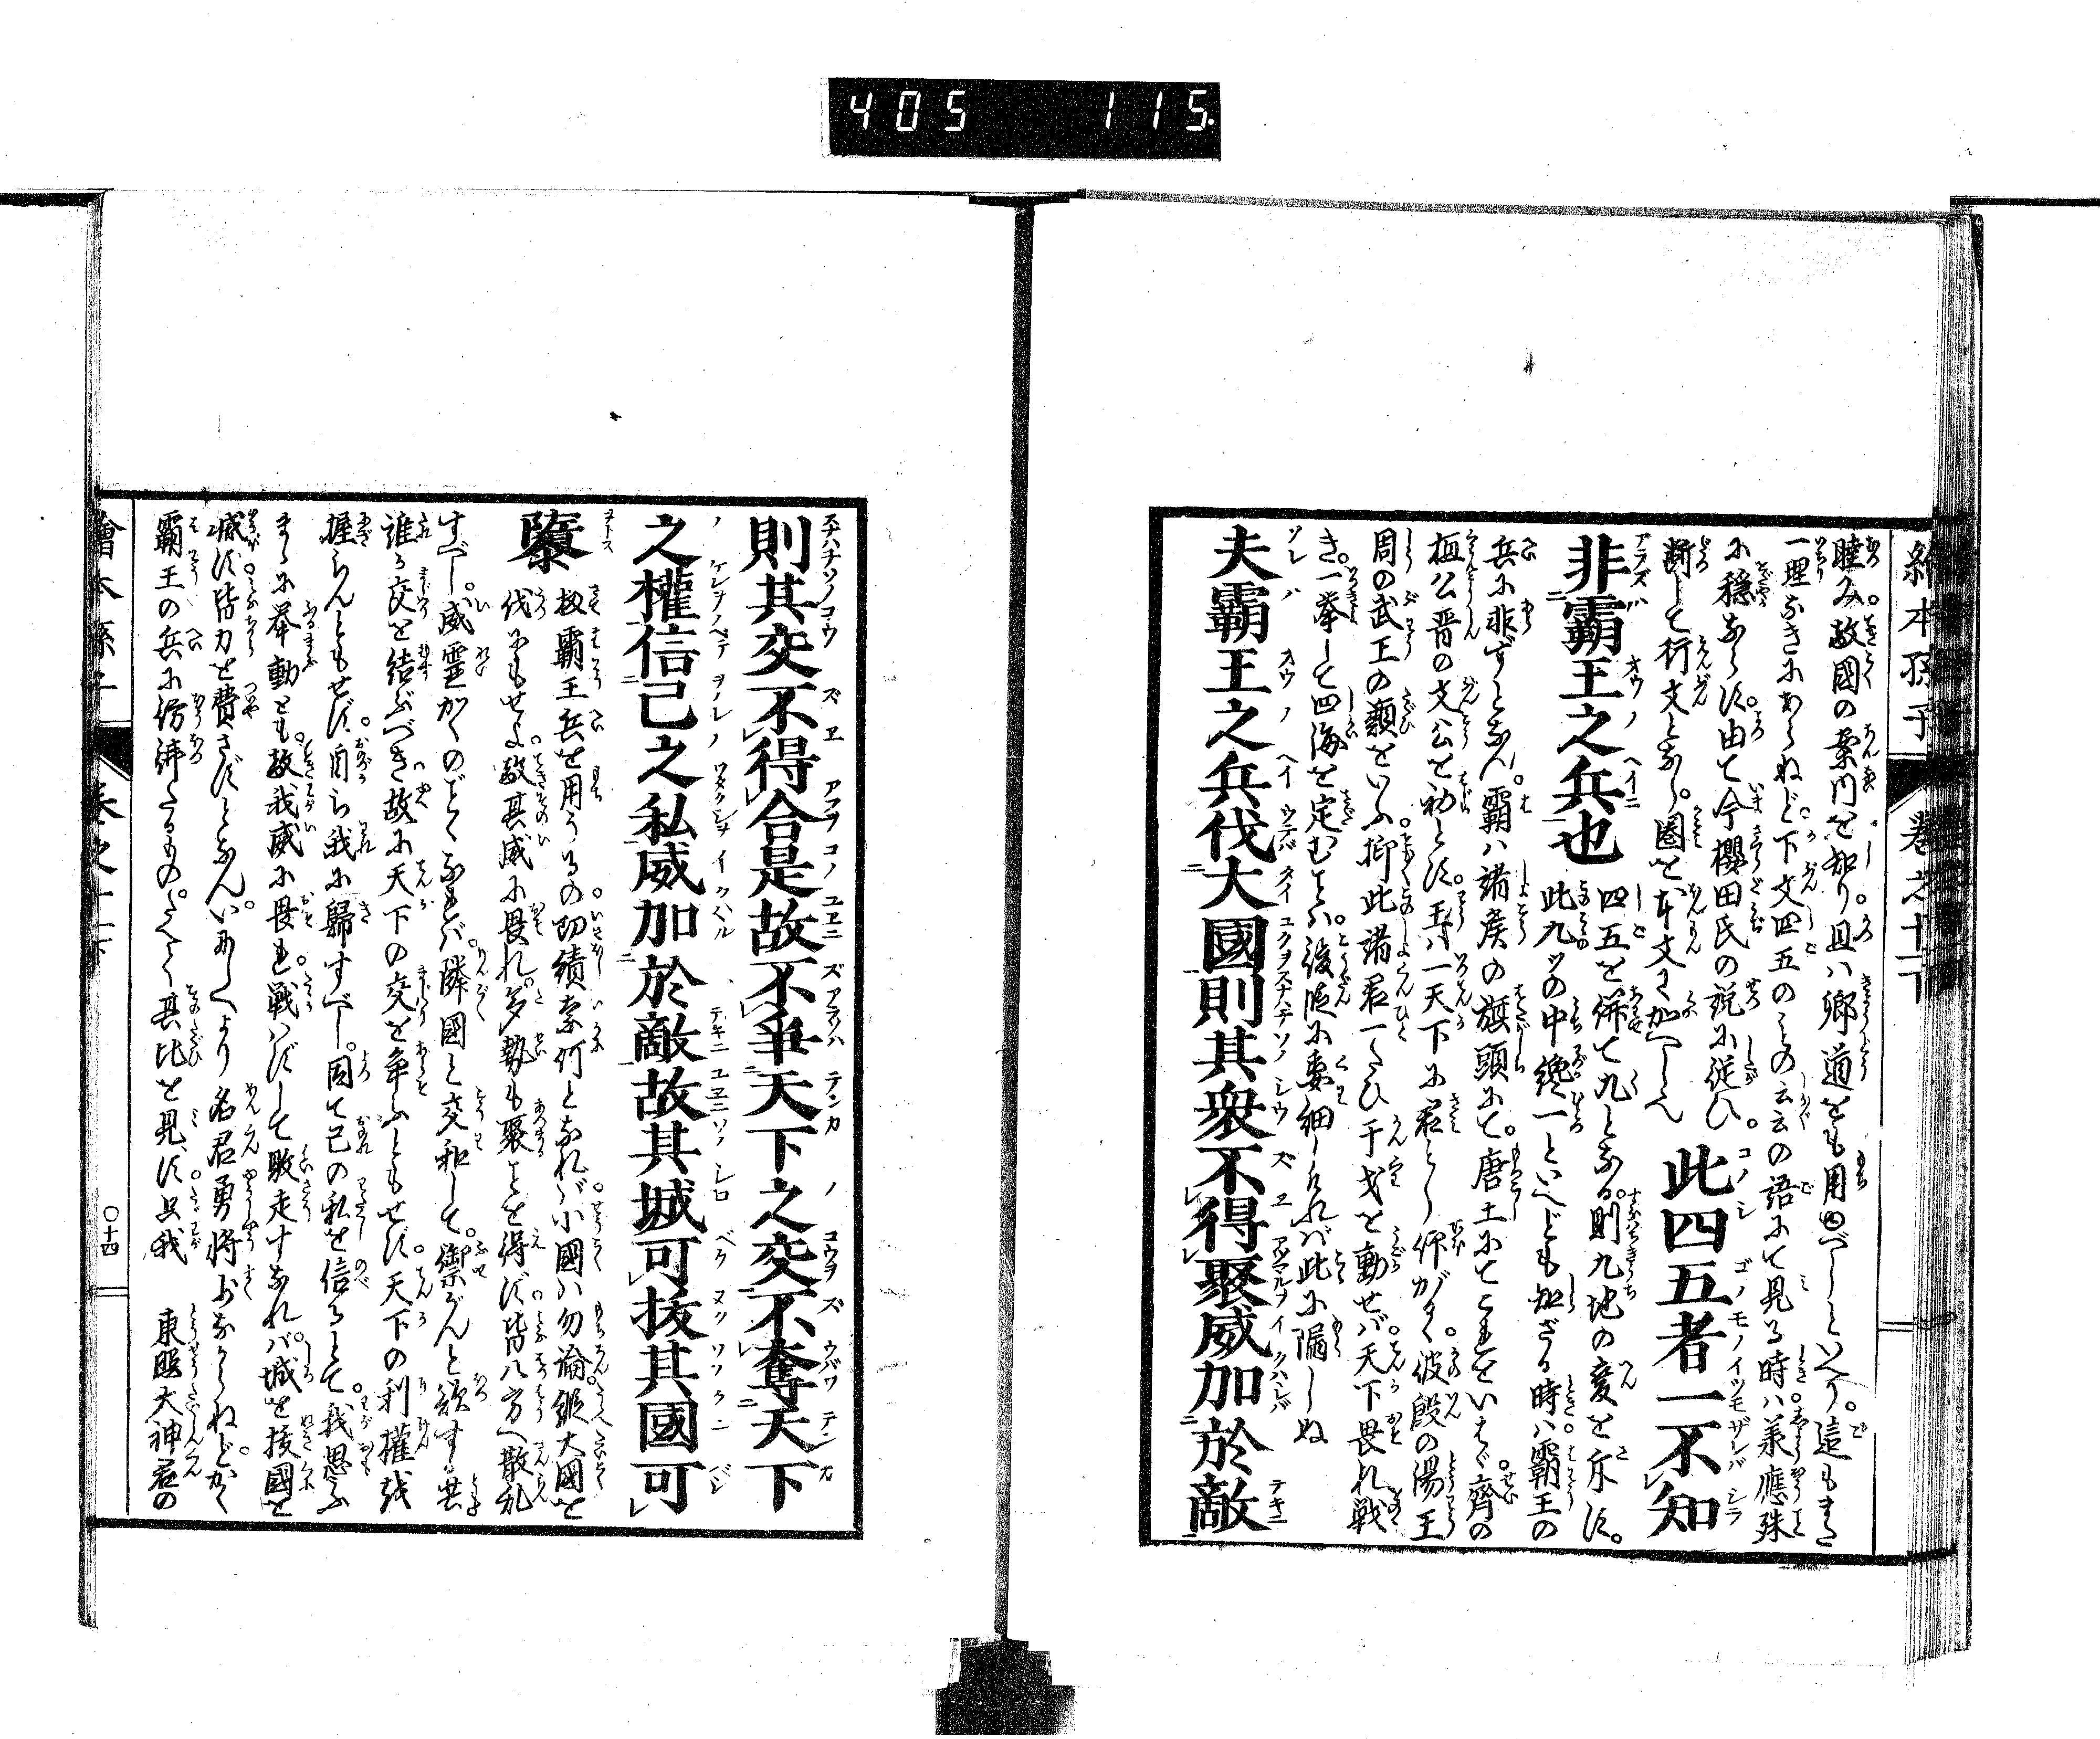 405 115
繪本孫子 卷之十一下
睦み。敵國の案内を知り。且ハ郷道をも用ゆべしといへり。這もまた
一理なきにあらねど。下文四五のもの云云の語にて見る時ハ。美應殊
に穩ならず。由て今櫻田氏の説に従ひ。
断して衍文となし。圏を本文に加へしのみ
此四五者一不知
非霸王之兵也
四五を併て九となる。則九地の変を斥す。
此九ッの中纔一といへども知ざる時ハ。霸王の
兵に非ずとなん。霸ハ諸侯の旗頭にて。唐土にてこれをいはゞ。齊の
桓公晋の文公を初とす。王ハ一天下に君とし仰がる。彼殷の湯王
周の武王の類をいふ。抑此諸君一たひ干戈を動せば。天下畏れ戦
き。一挙して四海を定むことハ。後段に委細しけれバ此に漏しぬ
夫霸王之兵伐大國則其衆不得聚威加於敵
則其交不得合是故不爭天下之交不奪天下
之權信己之私威加於敵故其城可抜其國可
隳
扨霸王兵を用うるの功績奈何となれバ。小國ハ勿論。縦大國を
伐にもせよ。敵其威に畏れ。多勢も聚ことを得ず。皆八方へ散乱
すべし。威霊かくのごとくなれバ。隣國と交和して。禦がんと欲する共
誰か交を結ぶべき。故に天下の交を争ふともせず。天下の利權を
握らんともせず。自ら我に歸すべし。因て己の私を信るとて。我思ふ
まゝに挙動とも。敵我威に畏れ。戦ハずして敗走すなれバ。城を抜國を
滅す。皆力を費さずとなん。いにしへより名君勇將少なからねど。かく
霸王の兵に彷彿たるもの。たえて其比を見ず。只我 東照大神君の
繪本孫子 卷之十一下 〇十四